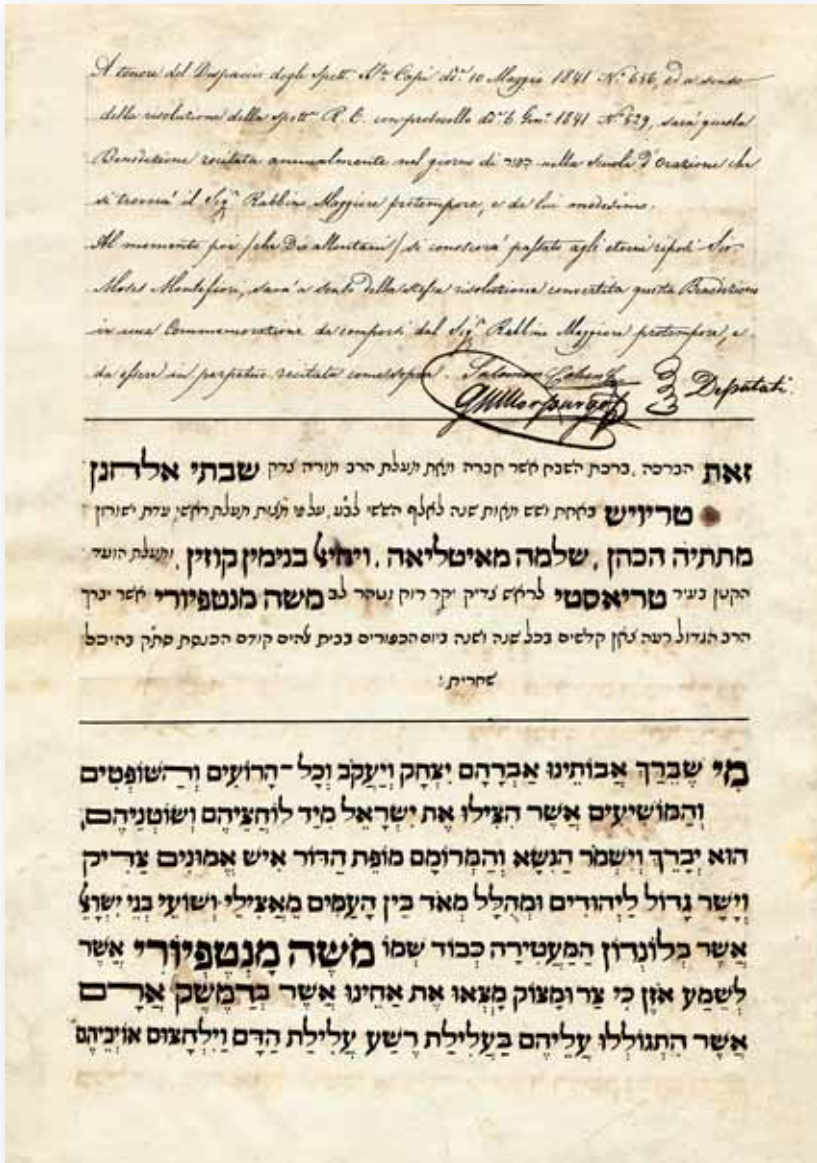 A tenore del Dispaccio degli Spett. Sri. Capi dd. 10 Maggio 1841 N. 656, ed a senso
della risoluzione della Spett. R. C. con protocollo dd. 6 Gen. 1841 N. 629, sarà questa
Benedizione recitata annualmente nel giorno di כפור nella Scuola d'Orazione che
si troverà il Sig. Rabbino Maggiore protempore, e da lui medesimo.
Al momento poi /che Dio allontani/ si conoscerà passato agli eterni riposi Sir
Moses Montefiori, sarà a senso della stessa risoluzione convertita questa Benedizione
in una Commemorazione da comporsi dal Sig. Rabbino Maggiore protempore, e
da essere in perpetuo recitata come sopra. Salomon Cohen
G Morpurgo Deputati
זאת הברכה, ברכת השבח אשר חברה מעלת הרב מורה צדק שבתי אלחנן
טריויש באחת ושש מאות שנה לאלף הששי לב״ע, על פי מצות מעלת ראשי עדת ישורון
מתתיה הכהן, שלמה מאיטליאה, ויחיאל בנימין קוזין, ומעלת הועד
הקטן בעיר טריאסטי לראש צדיק יקר רוח וטהר לב משה מנטפיורי אשר יברך
הרב הגדול רעה צאן קדשים בכל שנה ושנה ביום הכפורים בבית אלהים קודם הכנסת ס״ת בהיכל
שחרית:
מִי שֶׁבֵּרַךְ אֲבוֹתֵינוּ אַבְרָהָם יִצְחָק וְיַעֲקֹב וְכָל־הָרוֹעִים וְהַשּׁוֹפְטִים
וְהַמּוֹשִׁיעִים אֲשֶׁר הִצִּילוּ אֶת יִשְׂרָאֵל מִיַּד לוֹחֲצֵיהֶם וְשׂוֹטְנֵיהֶם,
הוּא יְבָרֵךְ וְיִשְׁמֹר הַנִּשָּׂא וְהַמְרוֹמָם מוֹפֵת הַדּוֹר אִישׁ אֱמוּנִים צַדִּיק
וְיָשָׁר גָּדוֹל לַיְּהוּדִים וּמְהֻלָּל מְאֹד בֵּין הָעַמִּים מֵאֲצִילֵי וְשׁוֹעֵי בְּנֵי יִשְׂרָאֵל
אֲשֶׁר בְּלוֹנְדְּרוֹן הַמַּעֲטִירָה כְּבוֹד שְׁמוֹ מֹשֶׁה מָנְטֶפְיוֹרִי אֲשֶׁר
לְשֵׁמַע אֹזֶן כִּי צַר וּמָצוֹק מְצָאוּ אֶת אַחֵינוּ אֲשֶׁר בְּדַמֶּשֶׂק אֲרָם
אֲשֶׁר הִתְגּוֹלְלוּ עֲלֵיהֶם בַּעֲלִילַת רֶשַׁע עֲלִילַת הַדָּם וַיִּלְחָצוּם אוֹיְבֵיהֶם